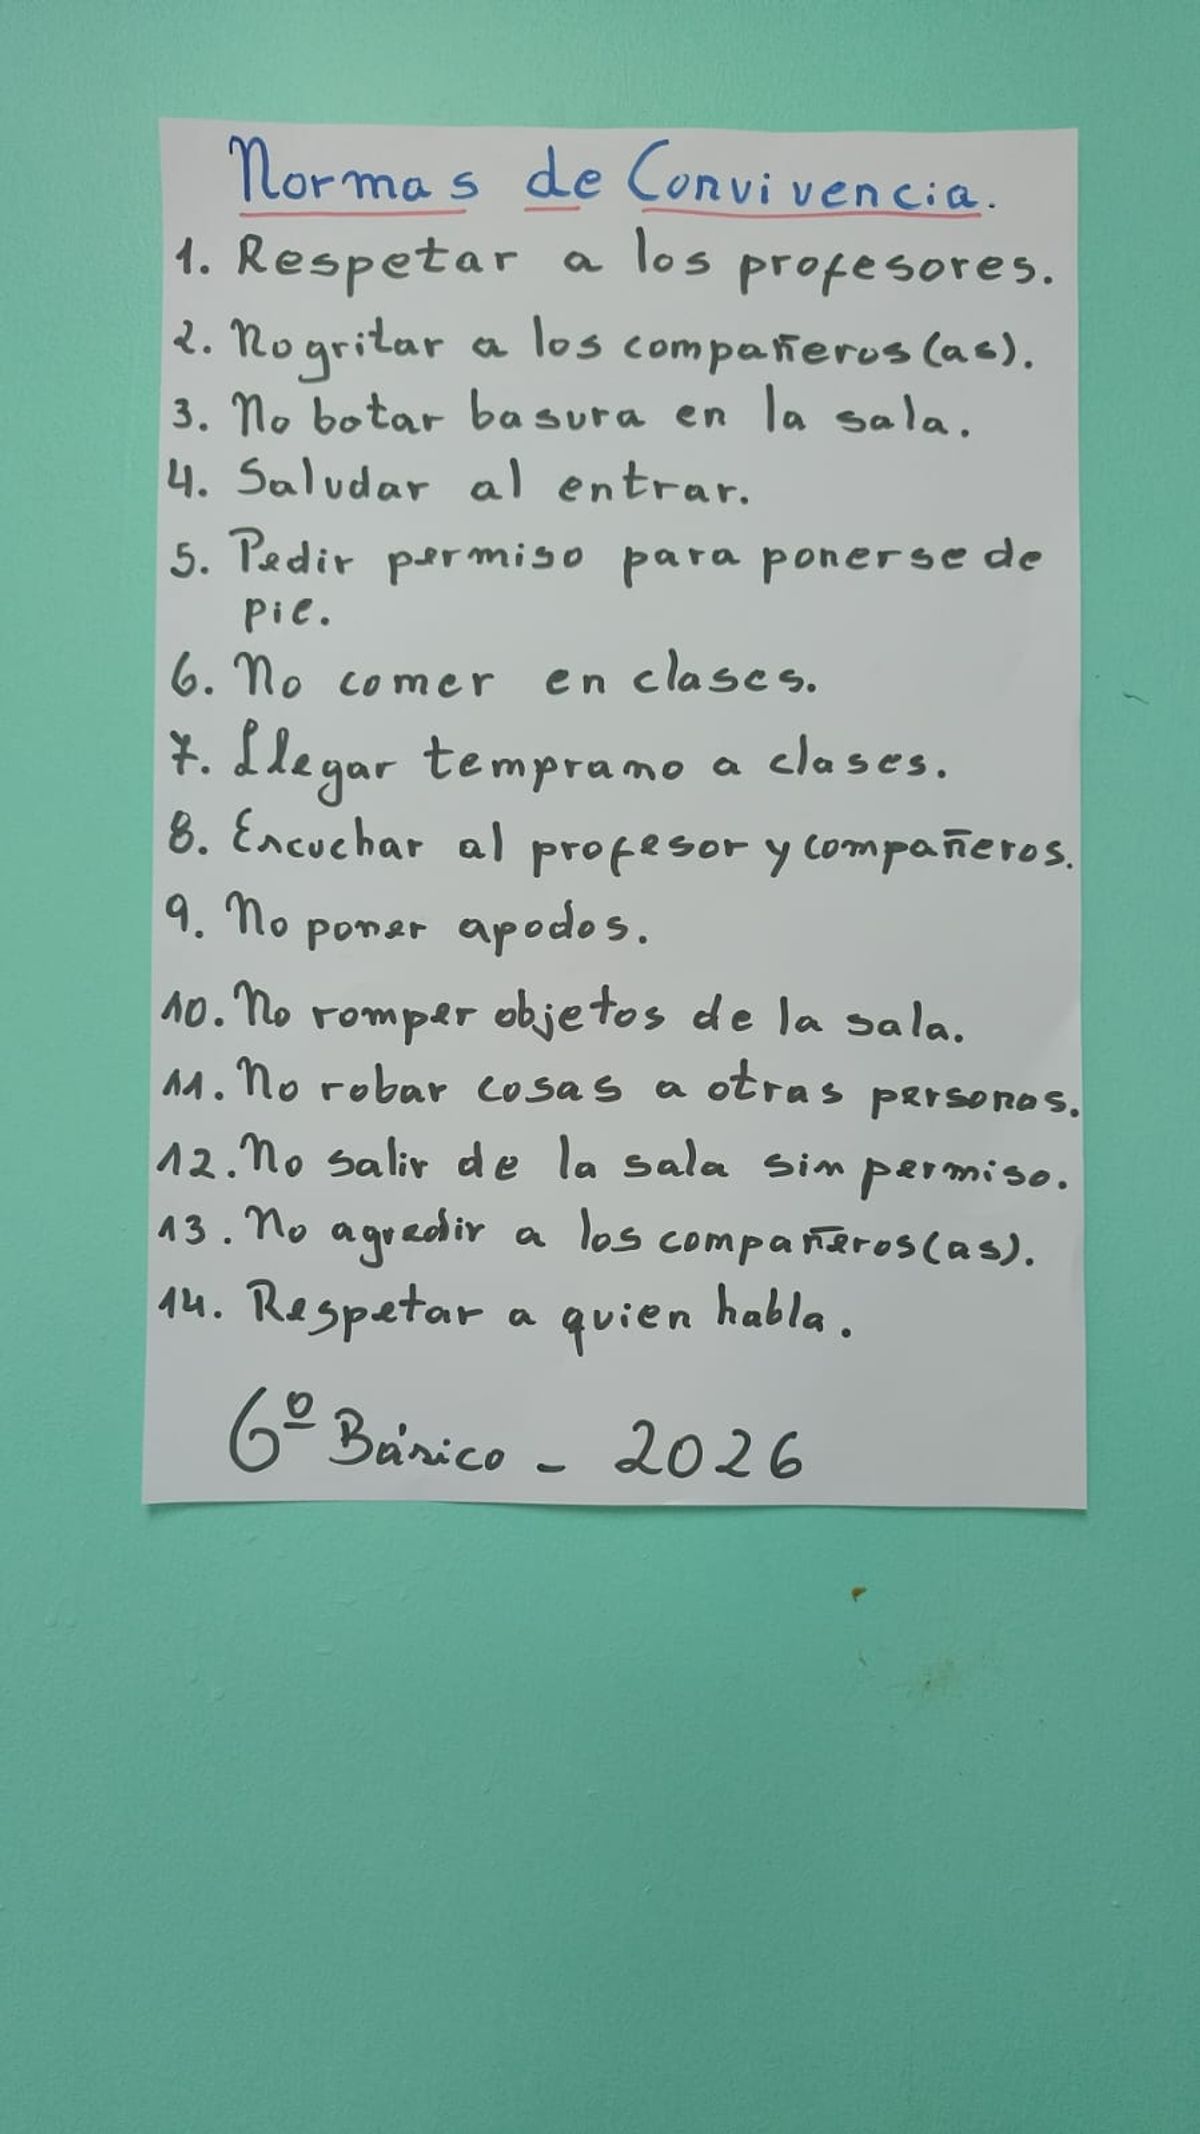 Normas de Convivencia.
1. Respetar a los profesores.
2. No gritar a los compañeros(as).
3. No botar basura en la sala.
4. Saludar al entrar.
5. Pedir permiso para ponerse de
pie.
6. No comer en clases.
7. Llegar temprano a clases.
8. Escuchar al profesor y compañeros.
9. No poner apodos.
10. No romper objetos de la sala.
11. No robar cosas a otras personas.
12. No salir de la sala sin permiso.
13. No agredir a los compañeros(as).
14. Respetar a quien habla.
6º Básico - 2026